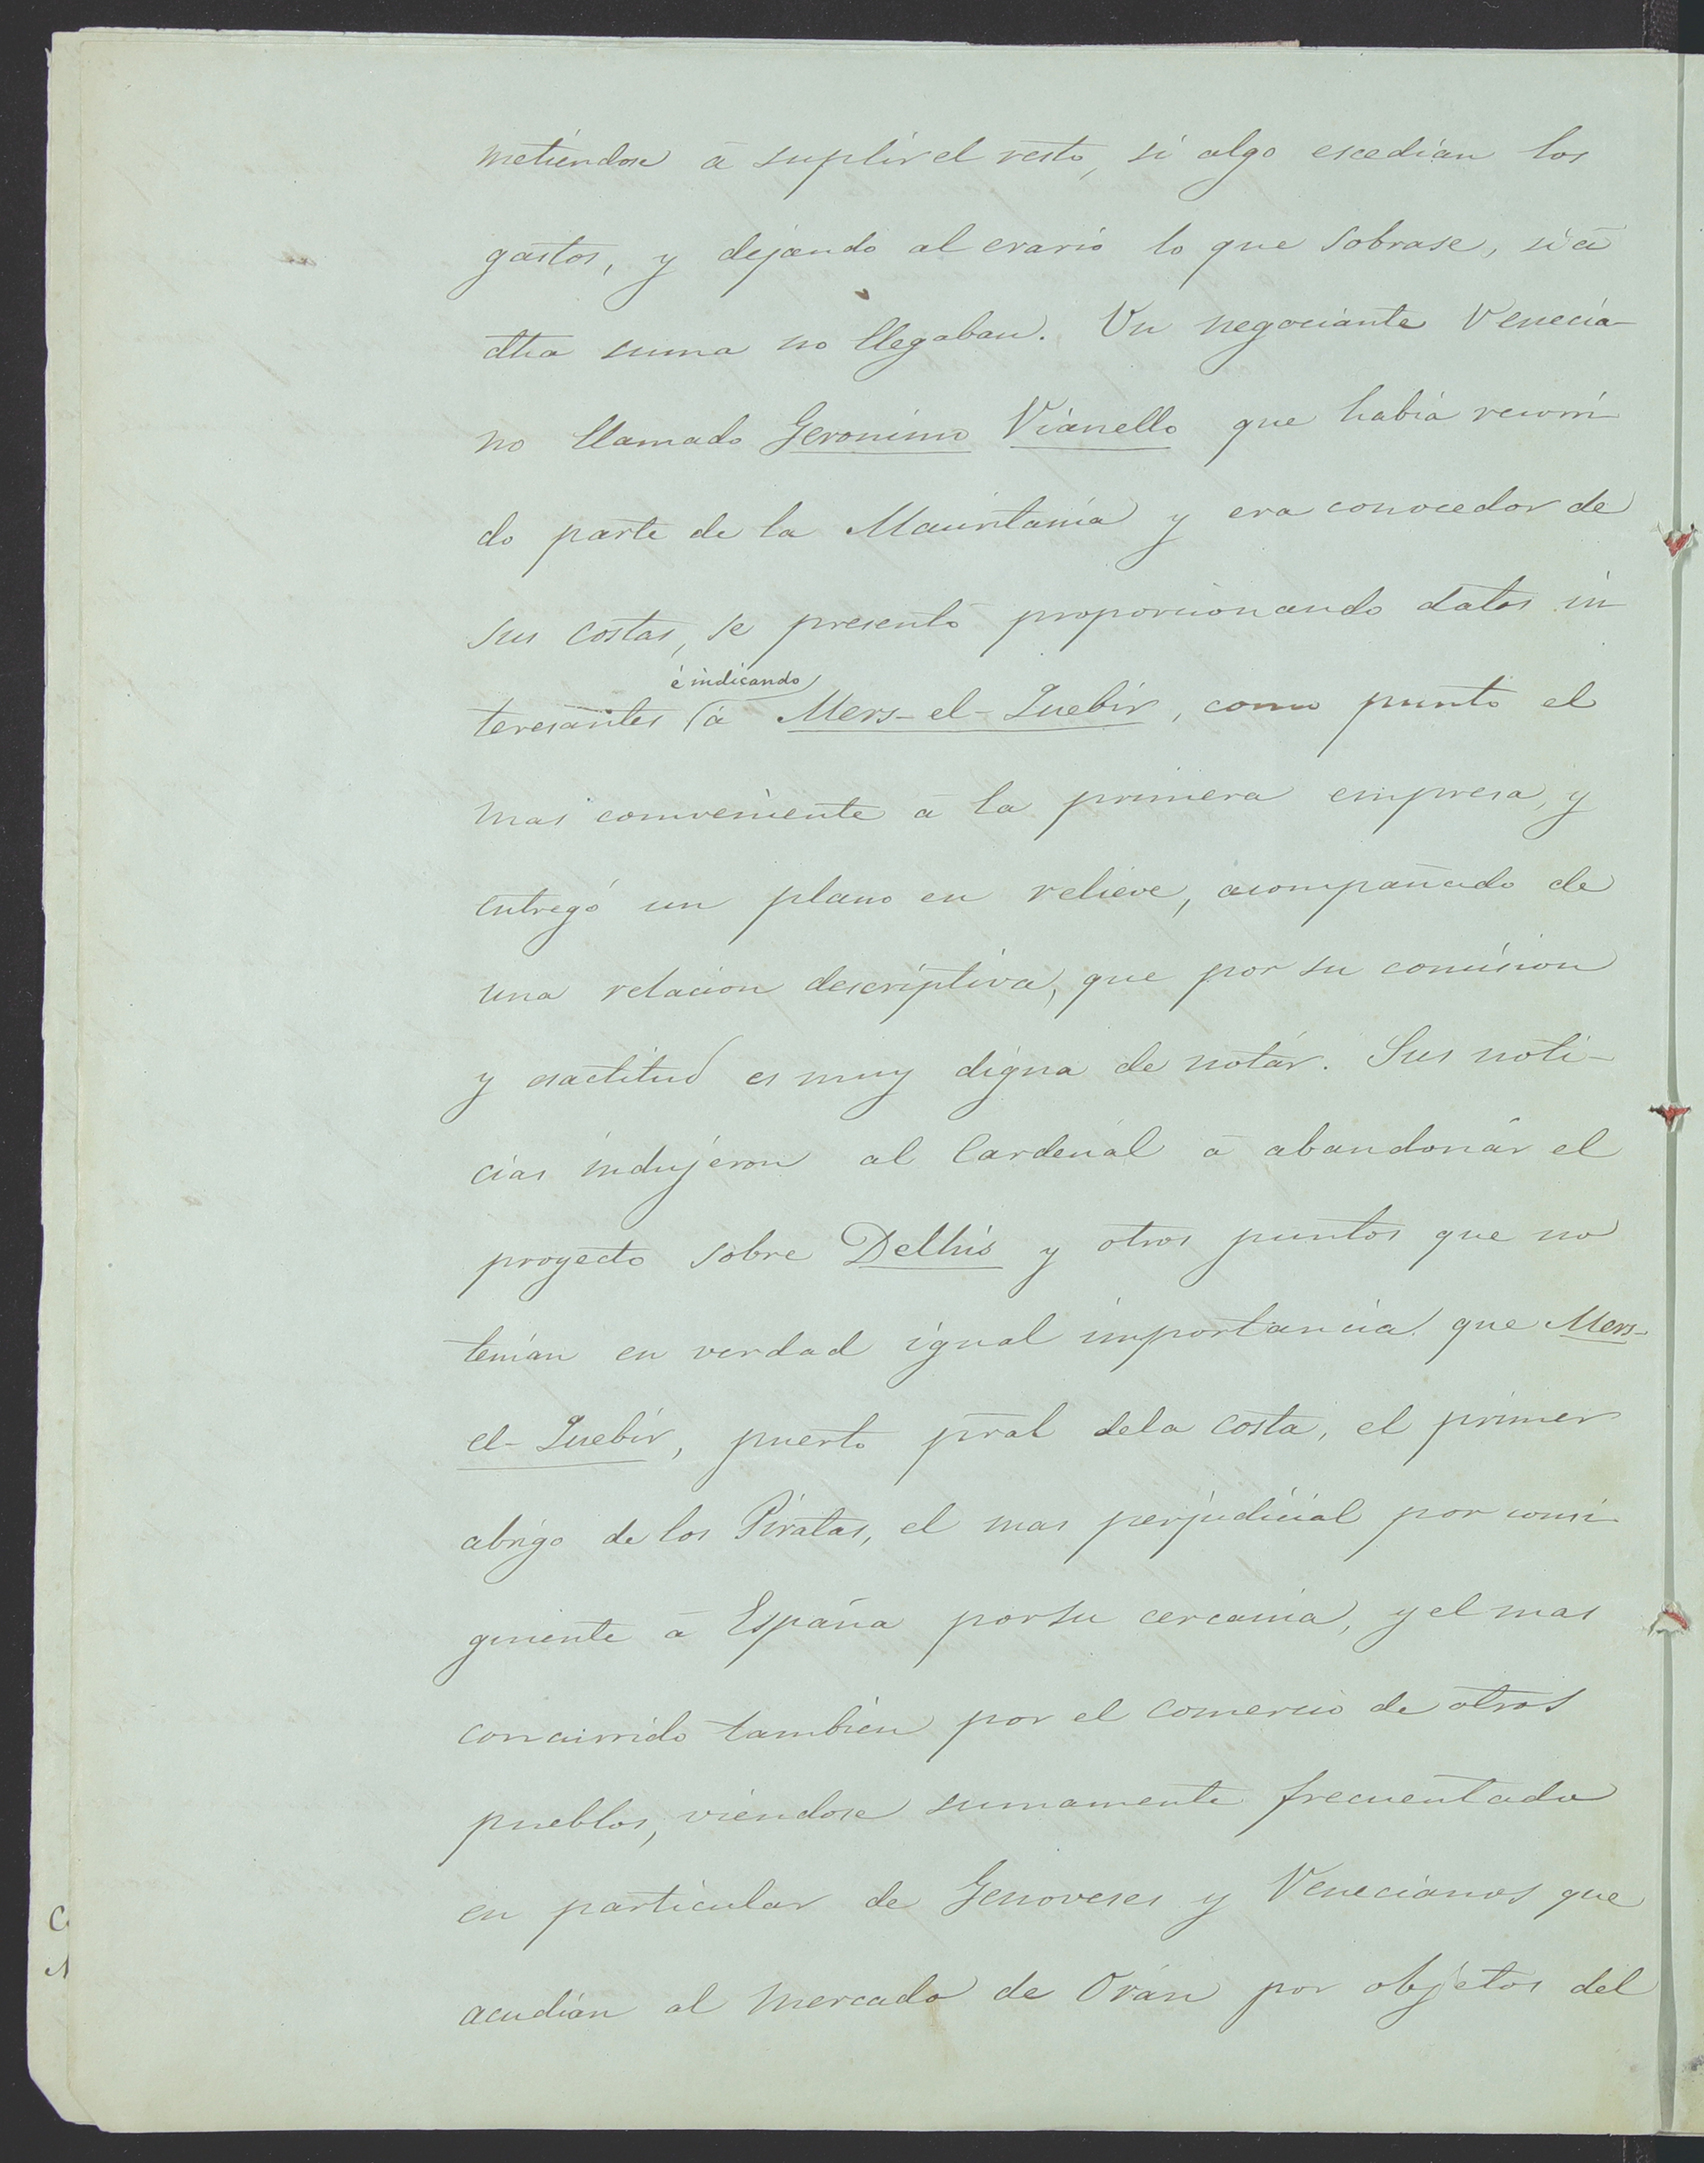 metiéndose á suplir el resto, si algo escedian los
gastos, y dejando al erario lo que sobrase, si á
dha suma no llegaban. Un negociante Venecia-
no llamado Geronimo Vianello que habia recorri-
do parte de la Mauritania y era conocedor de
sus costas, se presentó proporcionando datos in-
é indicando
teresantes (á Mers-el-Quebir, como punto el
mas conveniente á la primera empresa, y
entregó un plano en relieve, acompañado de
una relacion descriptiva, que por su concision
y esactitud es muy digna de notár. Sus noti-
cias indujeron al Cardenal á abandonár el
proyecto sobre Dellis y otros puntos que no
tenian en verdad igual importancia que Mers-
el-Quebir, puerto pral dela costa, el primer
abrigo de los Piratas, el mas perjudicial por consi-
guiente á España por su cercania, y el mas
concurrido tambien por el comercio de otros
pueblos, viendose sumamente frecuentado
en particular de Genoveses y Venecianos que
acudian al mercado de Orán por objetos del
C